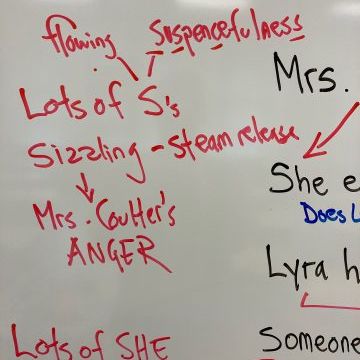 flowing Suspencefulness
Mrs.
Lots of S's
Sizzling - Steam release
She e
Mrs. Coulter's
Does L
ANGER
Lyra h
Lots of SHE
Someone